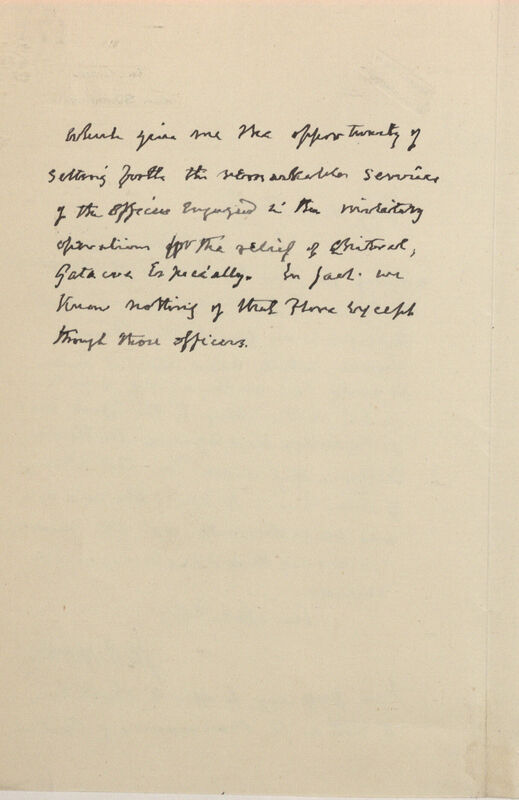 which give me the opportunity of
setting forth the remarkable services
of the officers engaged in the military
operations for the relief of Chitral,
Gatacre Especially. In fact we
know nothing of that Flora Except
through those officers.